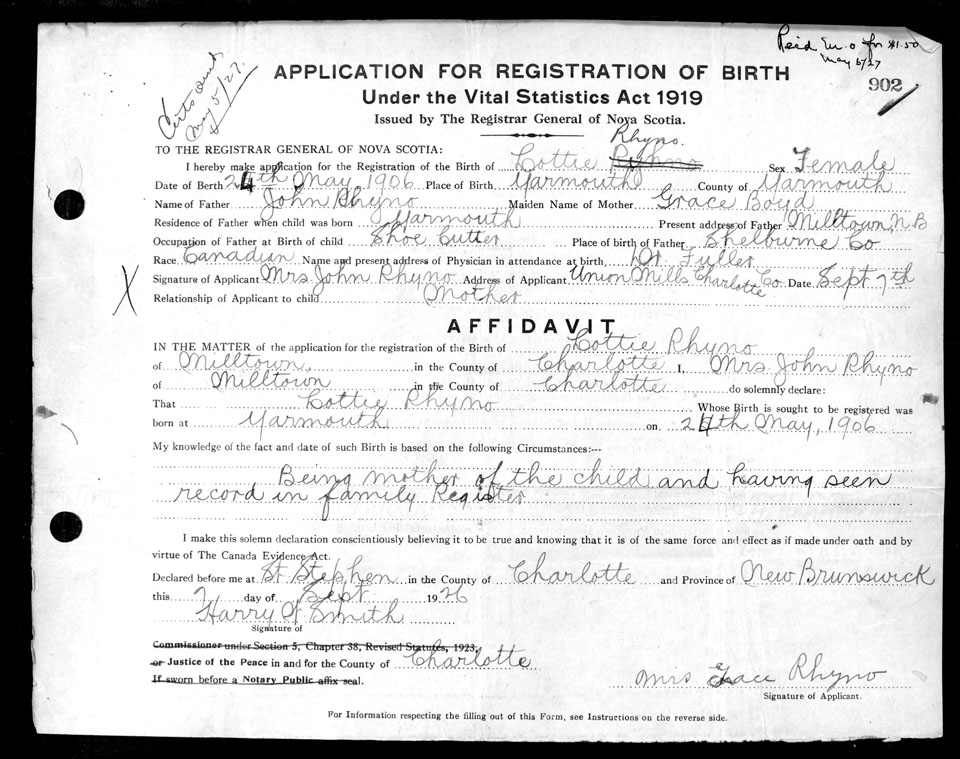 Paid M.O for $1.50
May 5/27
Certs Sent
May 5/27.
902
APPLICATION FOR REGISTRATION OF BIRTH
Under the Vital Statistics Act 1919
Issued by The Registrar General of Nova Scotia.
TO THE REGISTRAR GENERAL OF NOVA SCOTIA:
Rhyno.
I hereby make application for the Registration of the Birth of Lottie Sex Female
Date of Berth 24th May 1906 Place of Birth Yarmouth County of Yarmouth
Name of Father John Rhyno Maiden Name of Mother Grace Boyd
Residence of Father when child was born Yarmouth Present address of Father Milltown, N.B
Occupation of Father at Birth of child Shoe Cutter Place of birth of Father Shelburne Co
Race Canadian Name and present address of Physician in attendance at birth, Dr Fuller
X Signature of Applicant Mrs John Rhyno Address of Applicant Union Mills Charlotte Co Date Sept 7th
Relationship of Applicant to child Mother
AFFIDAVIT
IN THE MATTER of the application for the registration of the Birth of Lottie Rhyno
of Milltown, in the County of Charlotte I, Mrs. John Rhyno
of Milltown in the County of Charlotte do solemnly declare:
That Lottie Rhyno Whose Birth is sought to be registered was
born at Yarmouth on 24th May, 1906
My knowledge of the fact and date of such Birth is based on the following Circumstances:—
Being mother of the child and having seen
record in family Register
I make this solemn declaration conscientiously believing it to be true and knowing that it is of the same force and effect as if made under oath and by
virtue of The Canada Evidence Act.
Declared before me at St Stephen in the County of Charlotte and Province of New Brunswick
this 7 day of Sept 1926
Harry W Smith
Signature of
Commissioner under Section 5, Chapter 38, Revised Statutes, 1923,
or Justice of the Peace in and for the County of Charlotte
If sworn before a Notary Public affix seal.
Mrs Grace Rhyno
Signature of Applicant.
For Information respecting the filling out of this Form, see Instructions on the reverse side.